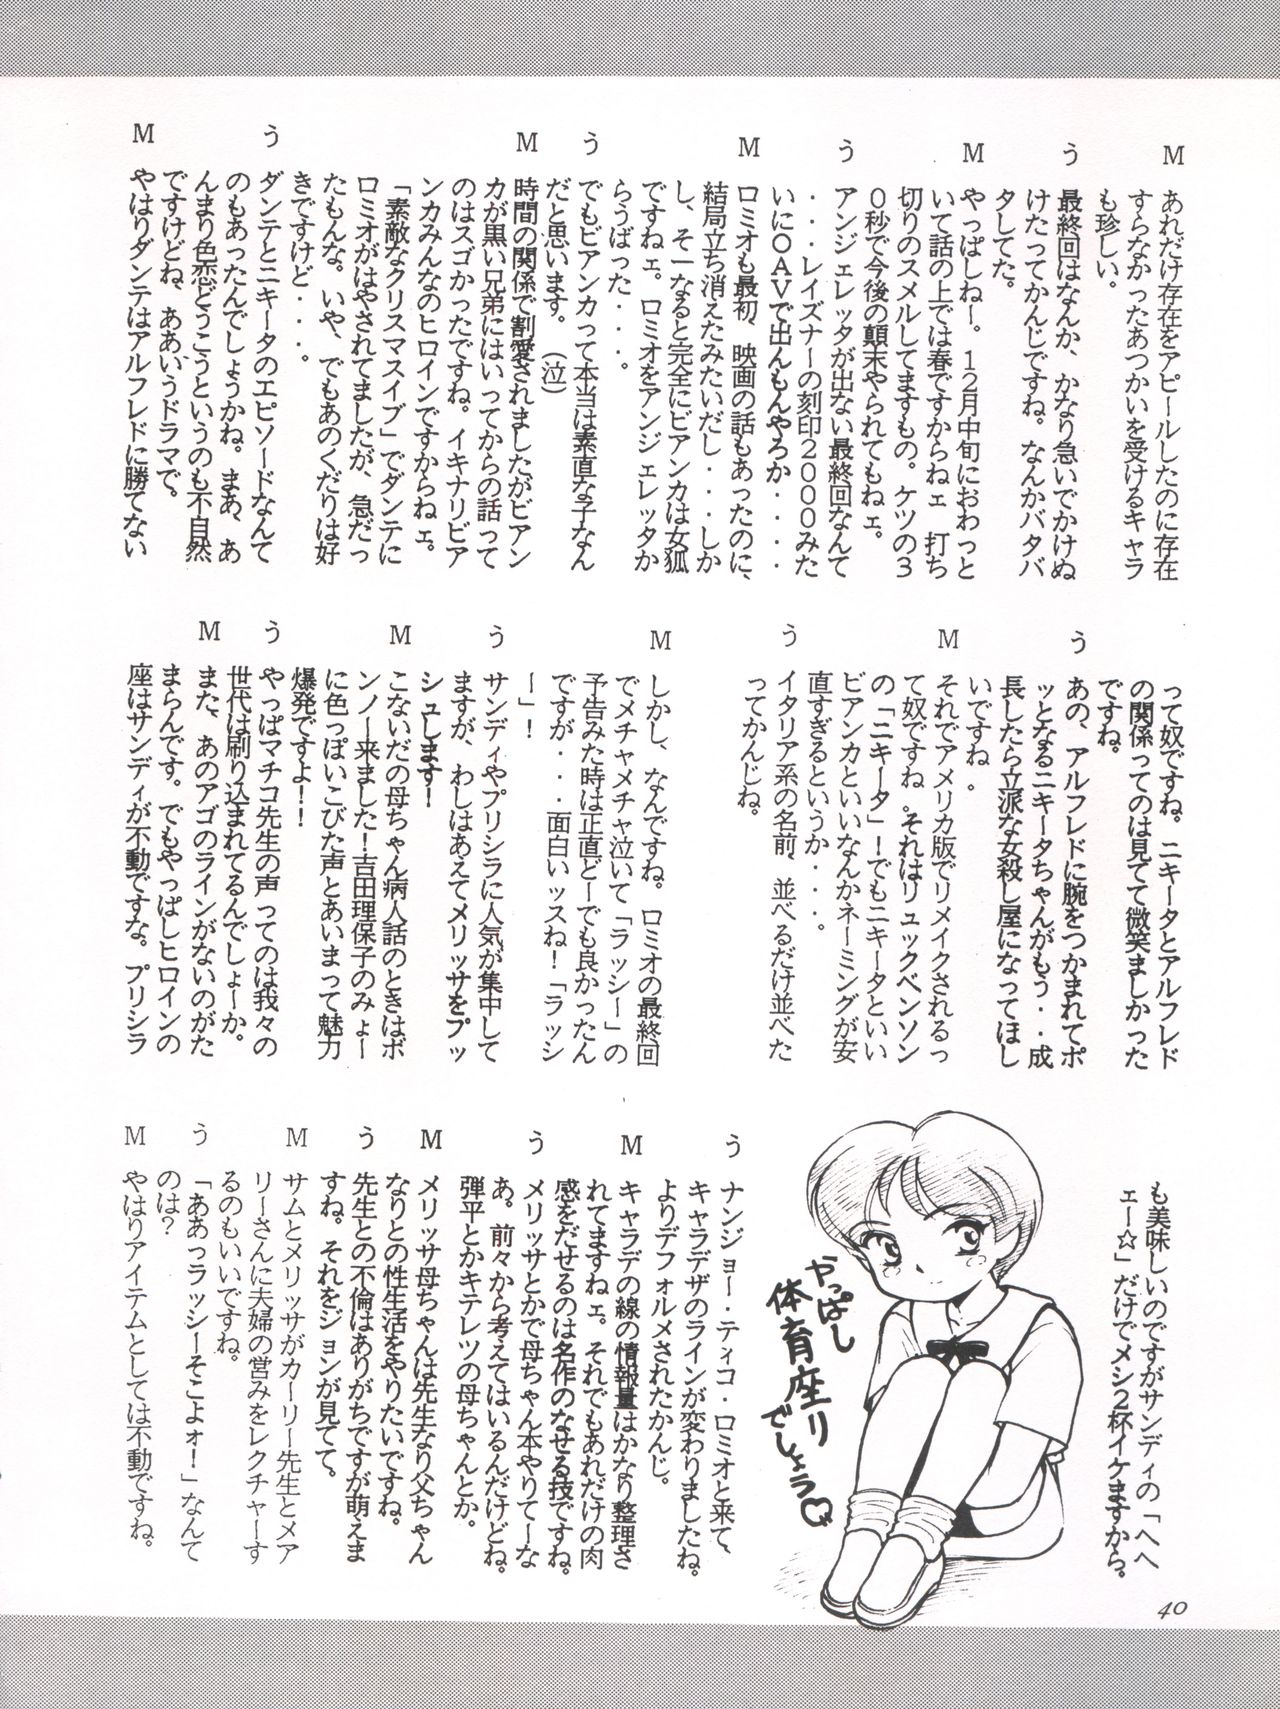 M
あれだけ存在をアピールしたのに存在
すらなかったあつかいを受けるキャラ
も珍しい。
う
最終回はなんか、かなり急いでかけぬ
けたってかんじですね。なんかバタバ
タしてた。
M
やっぱしね〜。12月中旬におわっと
いて話の上では春ですからねェ　打ち
切りのスメルしてますもの。ケツの3
0秒で今後の顛末やられてもねェ。
う
アンジェレッタが出ない最終回なんて
・・・レイズナーの刻印2000みた
いにOAVで出んもんやろか・・・・
M
ロミオも最初、映画の話もあったのに、
結局立ち消えたみたいだし・・・しか
し、そーなると完全にビアンカは女狐
ですねェ。ロミオをアンジェレッタか
らうばった・・・。
う
でもビアンカって本当は素直な子なん
だと思います。（泣）
M
時間の関係で割愛されましたがビアン
カが黒い兄弟にはいってからの話って
のはスゴかったですね。イキナリビア
ンカみんなのヒロインですからねェ。
「素敵なクリスマスイブ」でダンテに
ロミオがはやされてましたが、急だっ
たもんな。いや、でもあのくだりは好
きですけど・・・。
う
ダンテとニキータのエピソードなんて
のもあったんでしょうかね。まあ、あ
んまり色恋どうこうというのも不自然
ですけどね、ああいうドラマで。
M
やはりダンテはアルフレドに勝てない
って奴ですね。ニキータとアルフレド
の関係ってのは見てて微笑ましかった
ですね。
う
あの、アルフレドに腕をつかまれてポ
ッとなるニキータちゃんがもう・・成
長したら立派な女殺し屋になってほし
いですね。
M
それでアメリカ版でリメイクされるっ
て奴ですね。それはリュックベンソン
の「ニキータ」！でもニキータといい
ビアンカといいなんかネーミングが安
直すぎるというか・・・。
う
イタリア系の名前、並べるだけ並べた
ってかんじね。
M
しかし、なんですね。ロミオの最終回
でメチャメチャ泣いて「ラッシー」の
予告みた時は正直どーでも良かったん
ですが・・・面白いッスね！「ラッシ
ー」！
う
サンディやプリシラに人気が集中して
ますが、わしはあえてメリッサをプッ
シュします！
M
こないだの母ちゃん病人話のときはボ
ンノー来ました！吉田理保子のみょー
に色っぽいこびた声とあいまって魅力
爆発ですよ！！
う
やっぱマチコ先生の声ってのは我々の
世代は刷り込まれてるんでしょーか。
M
また、あのアゴのラインがないのがた
まらんです。でもやっぱしヒロインの
座はサンディが不動ですな。プリシラ
も美味しいのですがサンディの「へへ
ェー☆」だけでメシ2杯イケますから。
やっぱし
体育座り
でしょう♡
う
ナンジョー・ティコ・ロミオと来て、
キャラデザのラインが変わりましたね。
よりデフォルメされたかんじ。
M
キャラデの線の情報量はかなり整理さ
れてますねェ。それでもあれだけの肉
感をだせるのは名作のなせる技ですね。
う
メリッサとかで母ちゃん本やりてーな
あ。前々から考えてはいるんだけどね。
弾平とかキテレツの母ちゃんとか。
M
メリッサ母ちゃんは先生なり父ちゃん
なりとの性生活をやりたいですね。
う
先生との不倫はありがちですが萌えま
すね。それをジョンが見てて。
M
サムとメリッサがカーリー先生とメア
リーさんに夫婦の営みをレクチャーす
るのもいいですね。
う
「ああっラッシーそこよォ！」なんて
のは？
M
やはりアイテムとしては不動ですね。
40